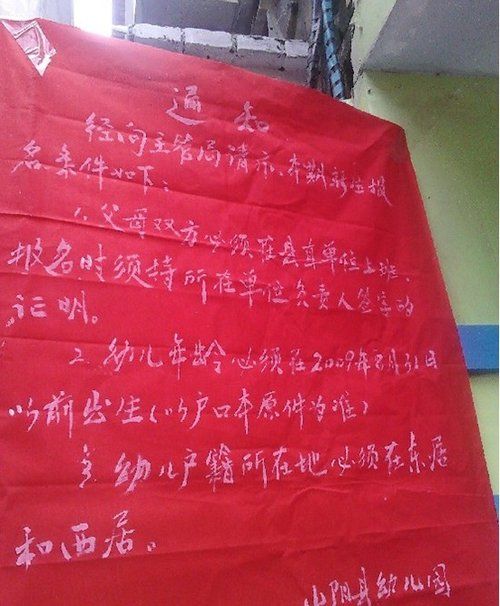 通知
经向主管局请示、本期新生报
名条件如下:
1、父母双方必须在县直单位上班、
报名时须持所在单位负责人签字的
证明。
2、幼儿年龄必须在2009年8月31日
以前出生(以户口本原件为准)
3、幼儿户籍所在地必须在东居
和西居。
山阳县幼儿园